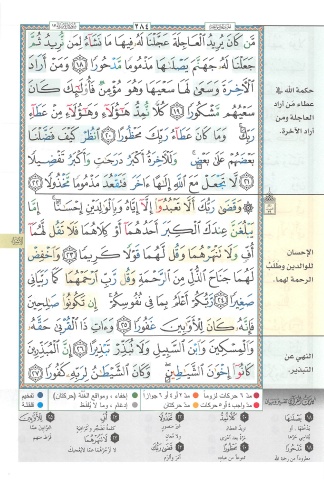 ٢٨٤
مَّن كَانَ يُرِيدُ ٱلْعَاجِلَةَ عَجَّلْنَا لَهُۥ فِيهَا مَا نَشَآءُ لِمَن نُّرِيدُ ثُمَّ
جَعَلْنَا لَهُۥ جَهَنَّمَ يَصْلَىٰهَا مَذْمُومًا مَّدْحُورًا ١٨ وَمَنْ أَرَادَ
ٱلْأَخِرَةَ وَسَعَىٰ لَهَا سَعْيَهَا وَهُوَ مُؤْمِنٌ فَأُو۟لَٰٓئِكَ كَانَ
سَعْيُهُم مَّشْكُورًا ١٩ كُلًّا نُّمِدُّ هَٰٓؤُلَآءِ وَهَٰٓؤُلَآءِ مِنْ عَطَآءِ
رَبِّكَ ۚ وَمَا كَانَ عَطَآءُ رَبِّكَ مَحْظُورًا ٢٠ ٱنظُرْ كَيْفَ فَضَّلْنَا
بَعْضَهُمْ عَلَىٰ بَعْضٍ ۚ وَلَلْأَخِرَةُ أَكْبَرُ دَرَجَٰتٍ وَأَكْبَرُ تَفْضِيلًا
٢١ لَّا تَجْعَلْ مَعَ ٱللَّهِ إِلَٰهًا ءَاخَرَ فَتَقْعُدَ مَذْمُومًا مَّخْذُولًا ٢٢
۞ وَقَضَىٰ رَبُّكَ أَلَّا تَعْبُدُوٓا۟ إِلَّآ إِيَّاهُ وَبِٱلْوَٰلِدَيْنِ إِحْسَٰنًا ۚ إِمَّا
يَبْلُغَنَّ عِندَكَ ٱلْكِبَرَ أَحَدُهُمَآ أَوْ كِلَاهُمَا فَلَا تَقُل لَّهُمَآ
أُفٍّ وَلَا تَنْهَرْهُمَا وَقُل لَّهُمَا قَوْلًا كَرِيمًا ٢٣ وَٱخْفِضْ
لَهُمَا جَنَاحَ ٱلذُّلِّ مِنَ ٱلرَّحْمَةِ وَقُل رَّبِّ ٱرْحَمْهُمَا كَمَا رَبَّيَانِى
صَغِيرًا ٢٤ رَّبُّكُمْ أَعْلَمُ بِمَا فِى نُفُوسِكُمْ ۚ إِن تَكُونُوا۟ صَٰلِحِينَ
فَإِنَّهُۥ كَانَ لِلْأَوَّٰبِينَ غَفُورًا ٢٥ وَءَاتِ ذَا ٱلْقُرْبَىٰ حَقَّهُۥ
وَٱلْمِسْكِينَ وَٱبْنَ ٱلسَّبِيلِ وَلَا تُبَذِّرْ تَبْذِيرًا ٢٦ إِنَّ ٱلْمُبَذِّرِينَ
كَانُوٓا۟ إِخْوَٰنَ ٱلشَّيَٰطِينِ ۖ وَكَانَ ٱلشَّيْطَٰنُ لِرَبِّهِۦ كَفُورًا ٢٧
حكمة الله في
عطاء من أراد
العاجلة ومن
أراد الآخرة.
الإحسان
للوالدين وطلب
الرحمة لهما.
النهي عن
التبذير.